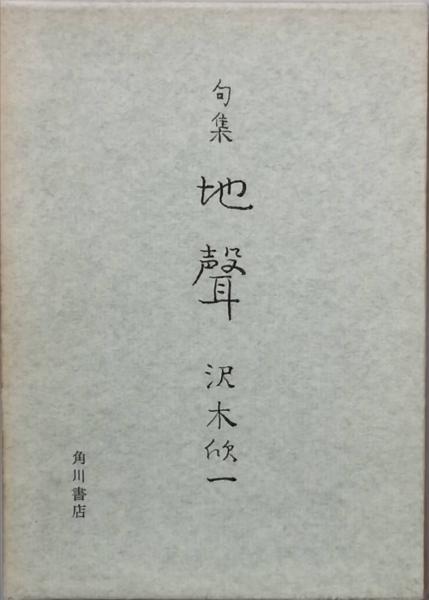 句集 地聲 沢木欣一
角川書店